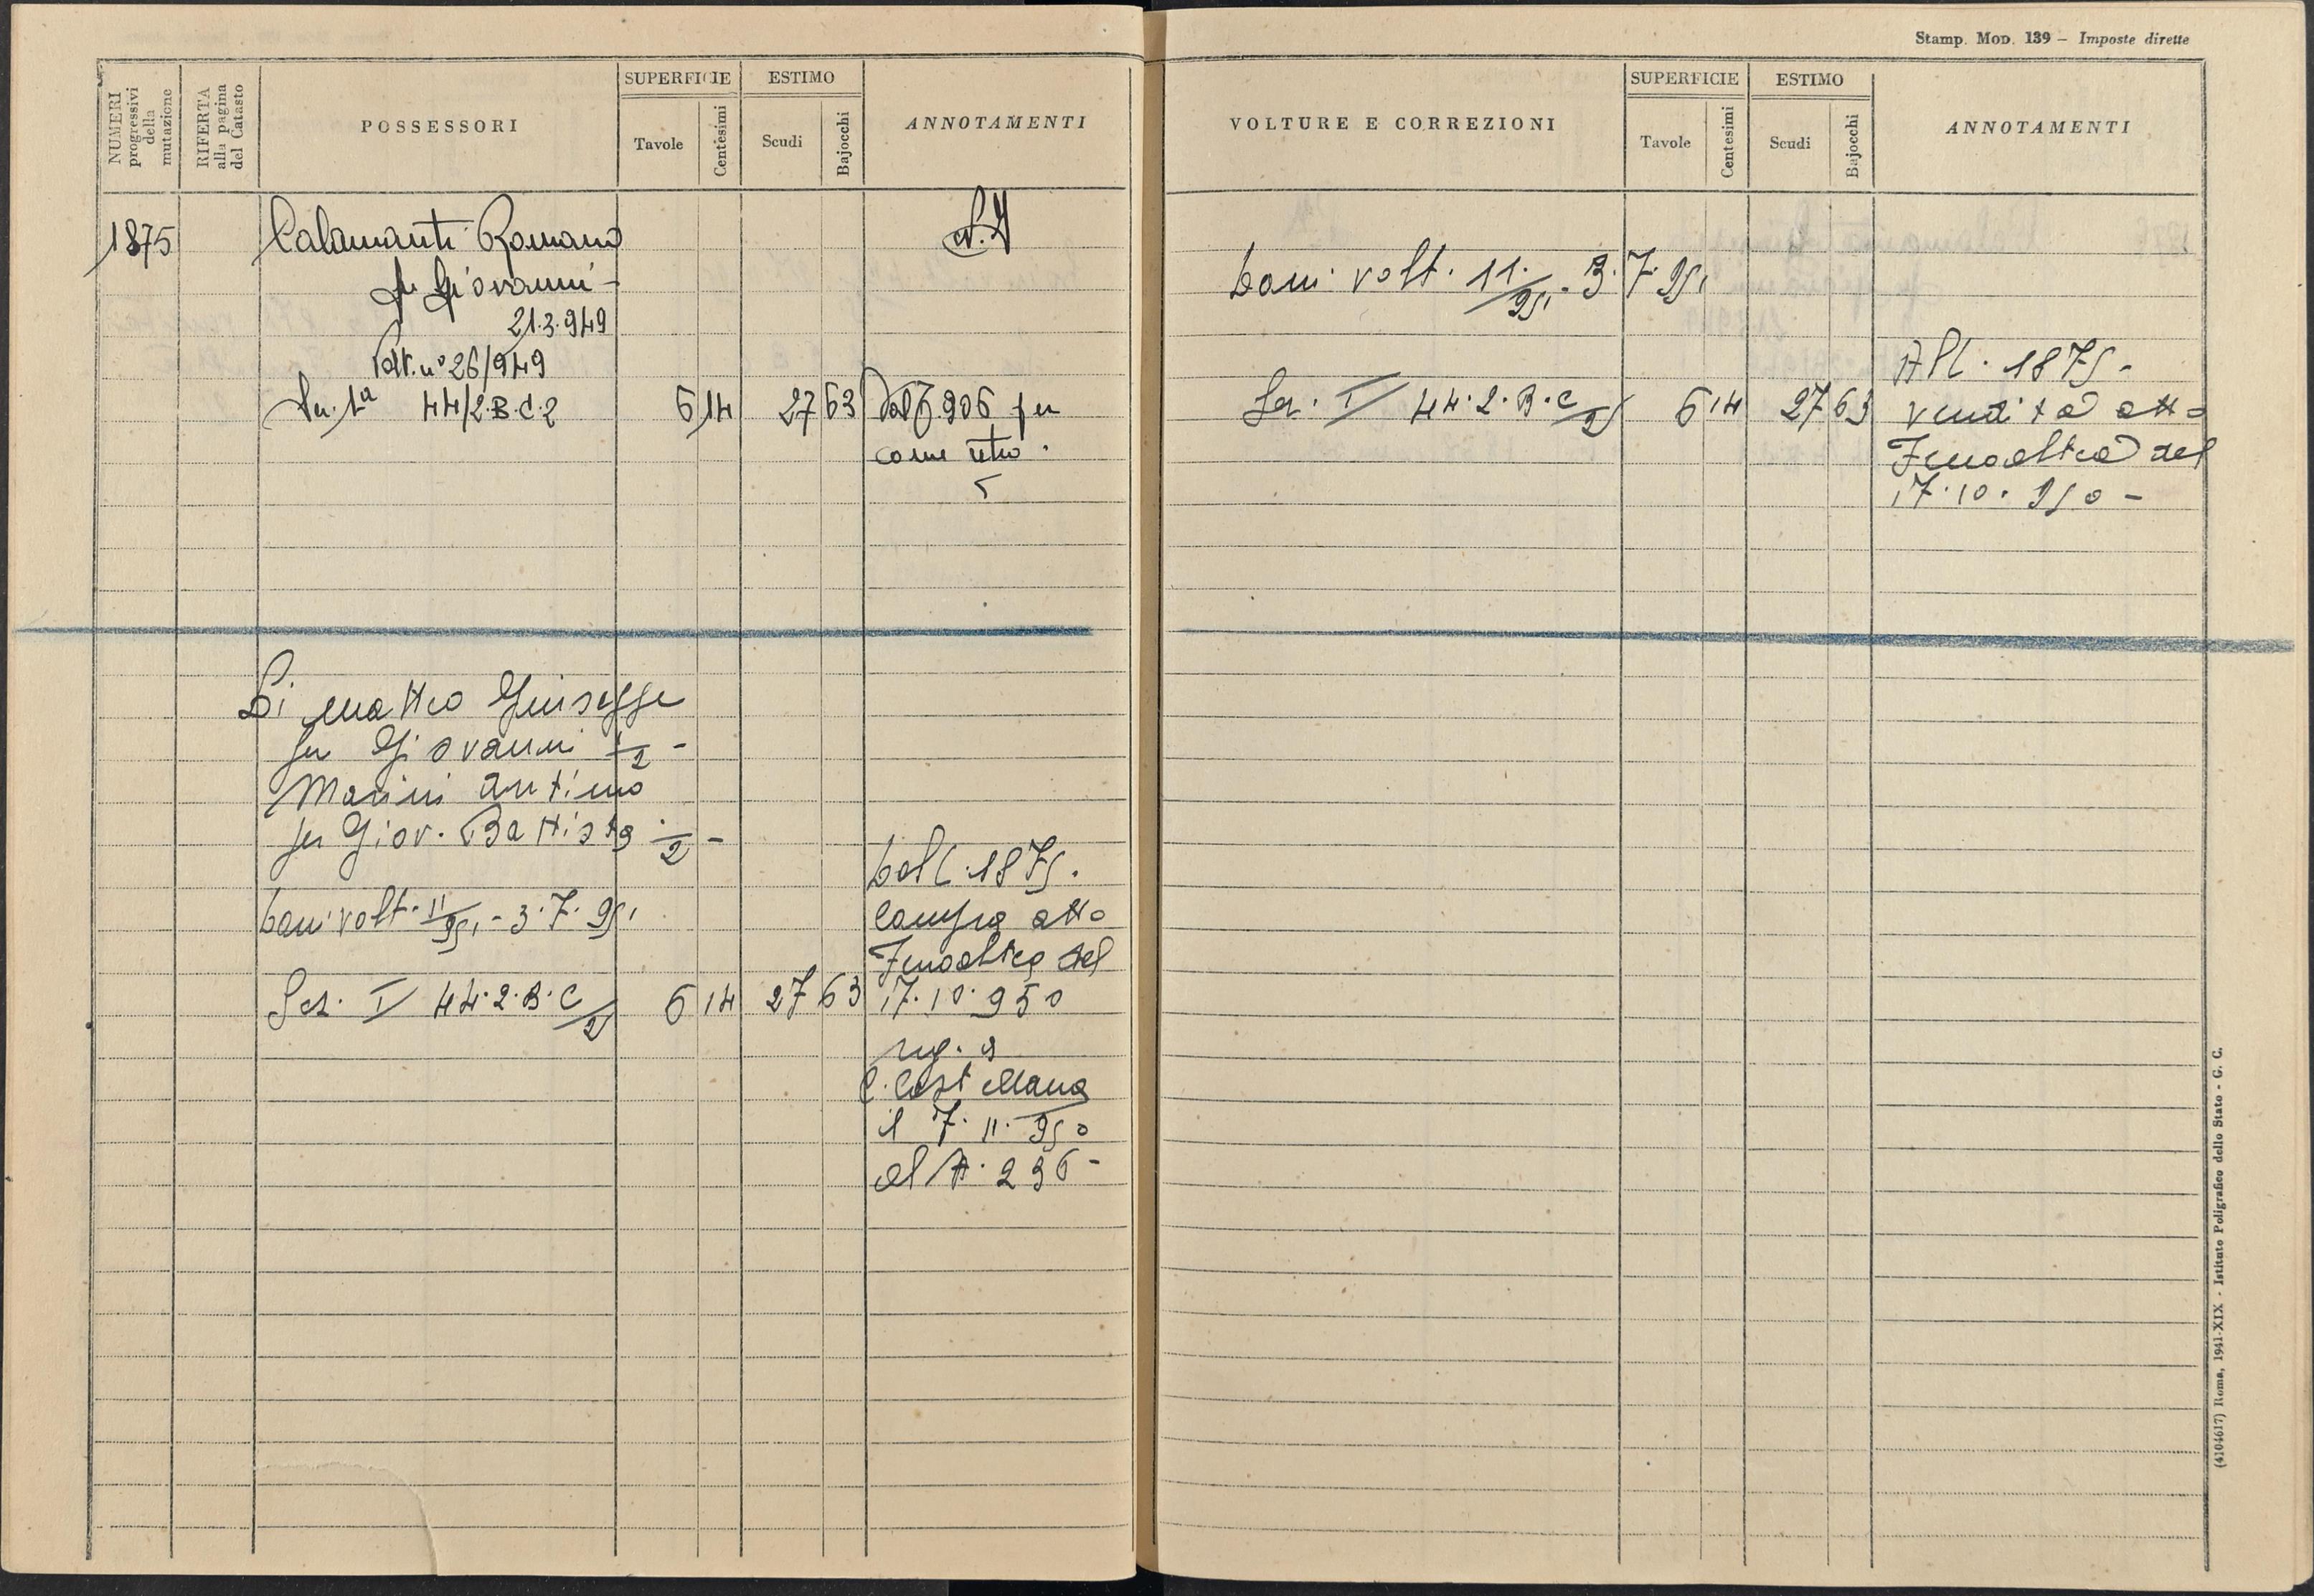 Stamp. Mod. 139 — Imposte dirette
NUMERI progressivi della mutazione
RIFERTA alla pagina del Catasto
POSSESSORI
SUPERFICIE
Tavole
Centesimi
ESTIMO
Scudi
Bajocchi
ANNOTAMENTI
1875
Calamanti Romano
fu Giovanni -
21.3.949
Volt. n° 26/949
Sez. 1a 44/2.B.C.2 6 14 27 63 906 per
come retro.
Di Matteo Giuseppe
fu Giovanni 1/2 -
Marini Antimo
fu Giov. Battista 1/2 -
volt. 11/951 - 3.7.951
Sez. I 44.2.B.C/2 6 14 27 63
Dall. 1875.
Compra atto
Fenoaltea del
17.10.950
reg. a
C. Castellana
il 7.11.950
al N. 236 -
VOLTURE E CORREZIONI
SUPERFICIE
Tavole
Centesimi
ESTIMO
Scudi
Bajocchi
ANNOTAMENTI
volt. 11/951 - 3.7.951
Sez. I 44.2.B.C/2 6 14 27 63
All. 1875 -
vendita atto
Fenoaltea del
17.10.950 -
(4104617) Roma, 1941-XIX - Istituto Poligrafico dello Stato - G. C.